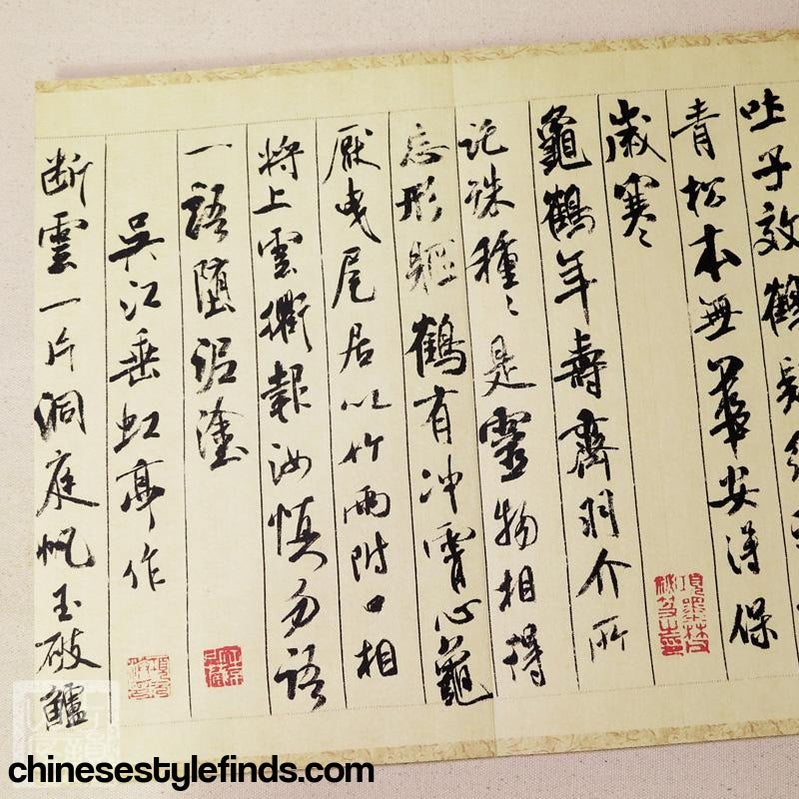 吐子效鶴疑縮
青松本無華安得保
歲寒
龜鶴年壽齊羽介所
託殊種〻是靈物相得
忘形軀鶴有沖霄心龜
厭曳尾居以竹兩附口相
將上雲衢報汝慎勿語
一語墮泥塗
吳江垂虹亭作
断雲一片洞庭帆玉破鱸
項墨林父秘笈之印
chinesestylefinds.com